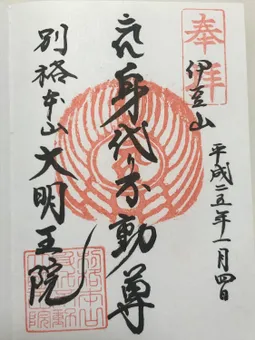 奉拝
伊豆山
平成二五年一月四日
元祖身代り不動尊
別格本山大明王院